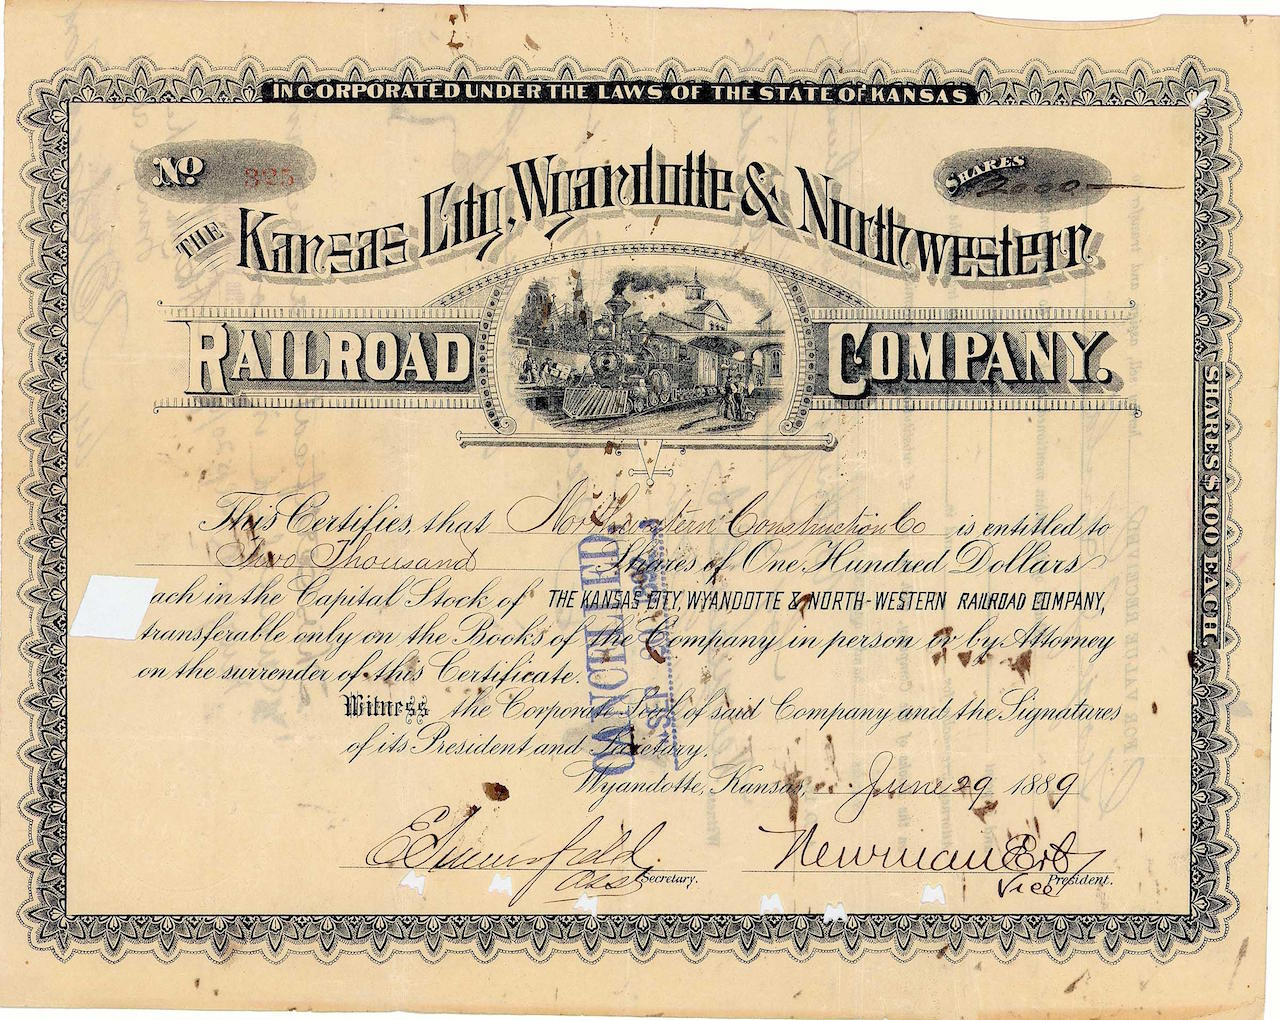 INCORPORATED UNDER THE LAWS OF THE STATE OF KANSAS
No 325
SHARES 2000
THE Kansas City, Wyandotte & Northwestern
RAILROAD COMPANY.
SHARES $100 EACH
This Certifies, that Northwestern Construction Co is entitled to
Two Thousand Shares of One Hundred Dollars
ach in the Capital Stock of THE KANSAS CITY, WYANDOTTE & NORTH-WESTERN RAILROAD COMPANY,
transferable only on the Books of the Company in person or by Attorney
on the surrender of this Certificate.
Witness the Corporate Seal of said Company and the Signatures
of its President and Secretary.
Wyandotte, Kansas, June 29 1889
CANCELLED
SEP 30
E Summerfield Newman Erb
Asst Secretary. Vice President.
FOR VALUE RECEIVED